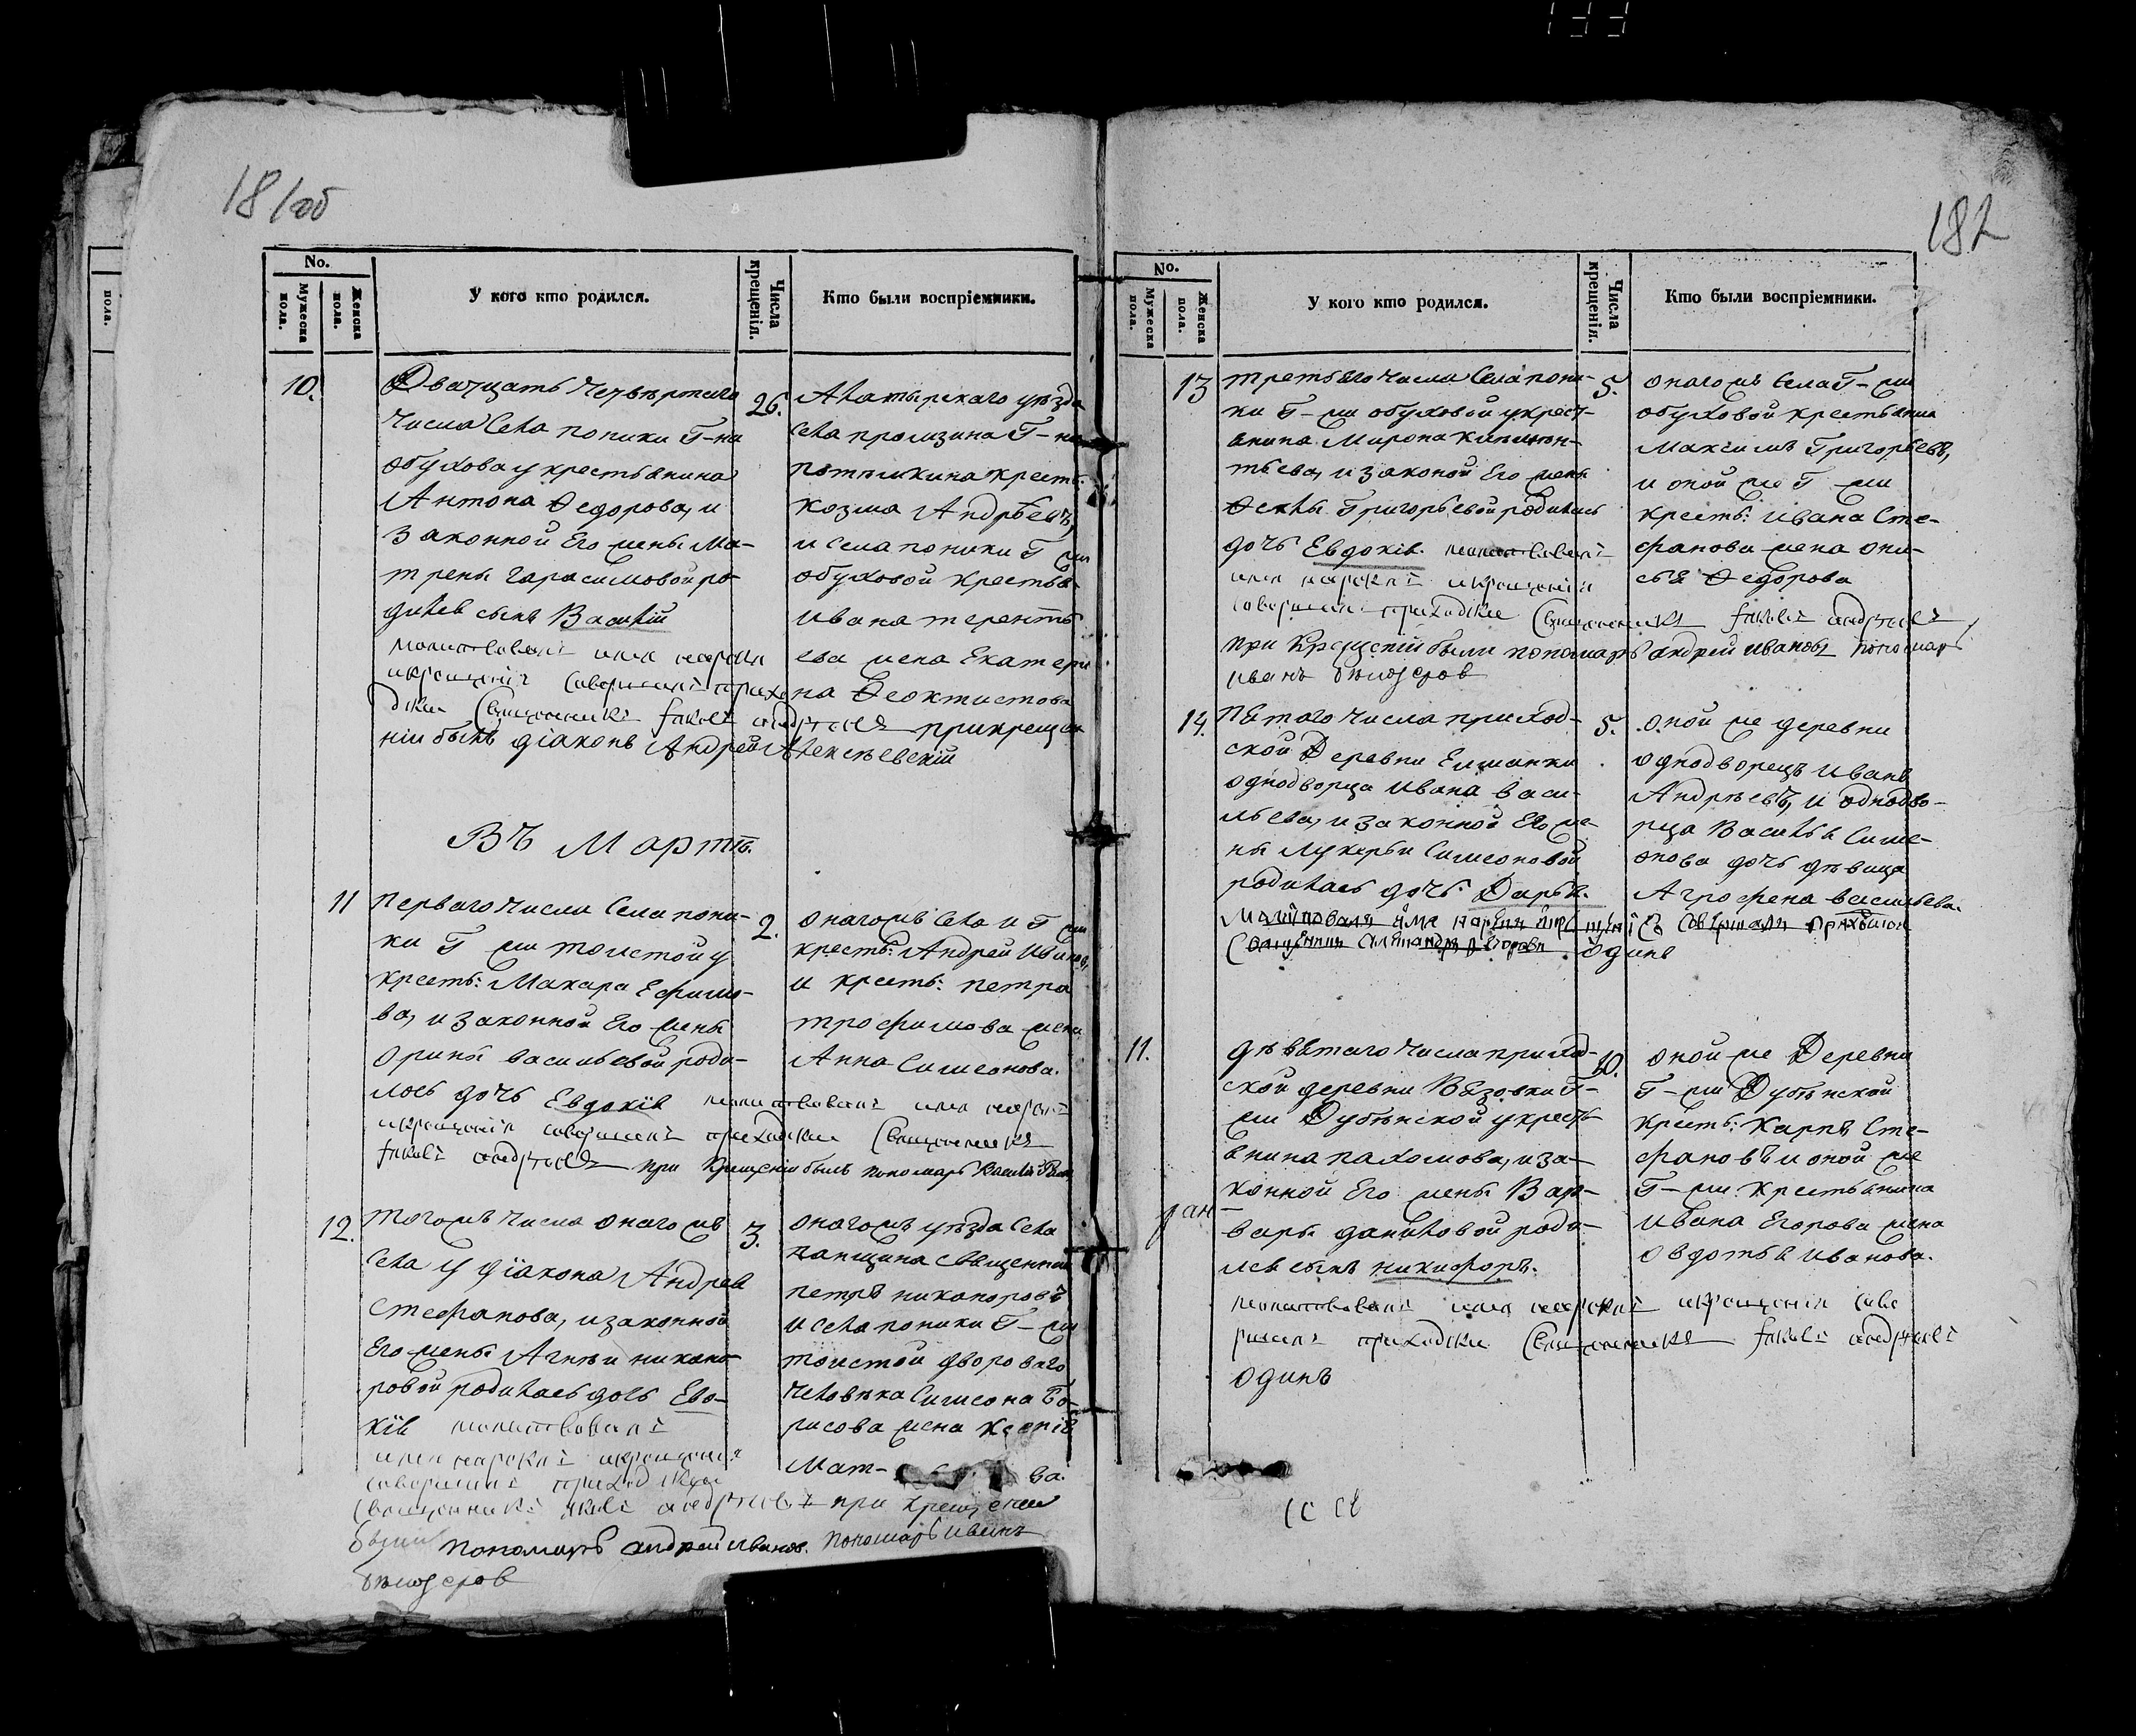 181об
No.
Мужеска пола.
Женска пола.
У кого кто родился.
Числа крещенія.
Кто были воспріемники.
10.
Дватцать четвертаго
числа села поники Г-на
обухова у крестьянина
Антона Ѳедорова, и
законной Его жены Ма-
трены гарасимовой ро-
дился сынъ Василій
молитвовалъ имя нарекъ
и крещеніе совершалъ прихо
дскій священникъ
при креще
ніи былъ діаконъ Андрей Алексѣевскій
26.
Алатырскаго уѣзда
села промзина Г-на
потемкина крестъ:
козма Андрѣевъ,
и села поники Г жи
обуховой крестья-
ивана терентъ
ева жена Екатери
на Ѳеоктистова
Въ Мартѣ.
11
перваго числа села пони-
ки Г жи толстой у
крестъ: Макара Ефимо-
ва, и законной Его жены
Орины васильевой роди-
лось дочь Евдокія молитвовалъ имя нарекъ
и крещеніе совершалъ приходскій священникъ
при крещеніи былъ пономарь
2.
онагожъ села и Г жи
крестъ: Андрей Иванов,
и крестъ: петра
трофимова жена
Анна симеонова.
12.
тогожъ числа онагожъ
села у діакона Андрея
стефанова, и законной
Его жены Агнѣи никано-
ровой родилась дочь Евдо-
кія молитвовалъ
имя нарекъ и крещеніе
совершалъ приходскій
священникъ при крещеніи
были пономарь андрей иванов. пономарь иванъ
бѣлозеров
3.
онагожъ уѣзда села
паншина священникъ
петръ никаноровъ
и села поники Г-жи
толстой двороваго
человѣка симеона Бо-
рисова жена ксенія
Мат- ва.
182
No.
Мужеска пола.
Женска пола.
У кого кто родился.
Числа крещенія.
Кто были воспріемники.
13
третьяго числа села пони-
ки Г-жи обуховой у крест-
янина Мирона
тьева, и законой Его жены
Ѳеклы Григорьевой родилась
дочь Евдокія. молитвовалъ
имя нарекъ и крещеніе
совершалъ приходскій священникъ
при крещеніи были пономарь андрей ивановъ пономарь
иванъ бѣлозеров
5.
онагожъ села Г-жи
обуховой крестьянин
Максимъ Григорьевъ,
и оной же Г жи
крестъ: ивана сте-
фанова жена они-
сья Ѳедорова
14.
пятаго числа приход-
ской Деревни Елшанки
однодворца ивана васи-
льева, и законной Его же-
ны лукерьи симеоновой
родилась дочь. Дарья.
одинъ
5.
оной же деревни
однодворецъ иванъ
Андрѣевъ, и однодво-
рца Василья симе-
онова дочь дѣвица
Агрофена васильева.
11.
девятаго числа приход-
ской деревни Вязовки Г-
жи Дубенской у крестъ
янина пахомова, и за-
конной Его жены Вар-
вары даниловой роди-
лся сынъ никифоръ.
молитвовалъ имя нарекъ и крещеніе сове
ршалъ приходскій священникъ
одинъ
10.
оной же Деревни
Г-жи Дубенской
крестъ: Карпъ сте-
фановъ и оной же
Г-жи крестьянина
ивана Егорова жена
овдотья иванова.